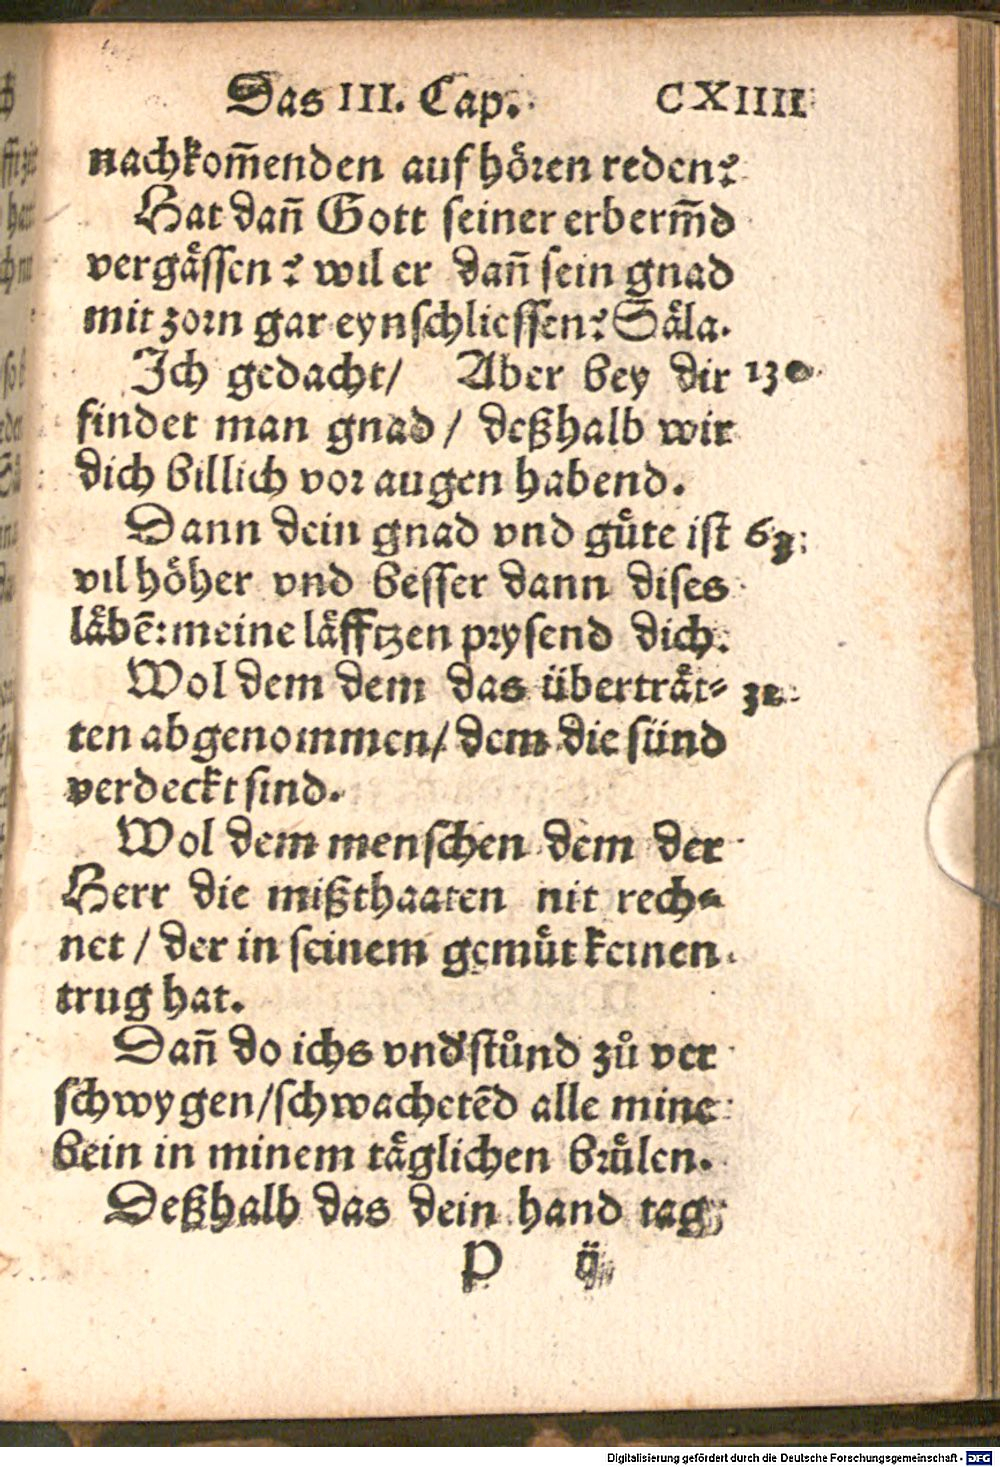 Das III. Cap. CXIIII
nachkom̄enden aufhören reden?
Hat dañ Gott seiner erberm̄d
vergåssen? wil er dañ sein gnad
mit zorn gar eynschliessen? Såla.
Ich gedacht/ Aber bey dir 130
findet man gnad/ deßhalb wir
dich billich vor augen habend.
Dann dein gnad vnd gůte ist 63.
vil höher vnd besser dann dises
låbē: meine låfftzen prysend dich.
Wol dem dem das übertråt⸗ 32.
ten abgenommen/ dem die sünd
verdeckt sind.
Wol dem menschen dem der
Herr die mißthaaten nit rech⸗
net/ der in seinem gemüt keinen
trug hat.
Dañ do ichs vnd'stůnd zů ver
schwygen/ schwachetēd alle mine
bein in minem tåglichen brůlen.
Deßhalb das dein hand tag
P ij
Digitalisierung gefördert durch die Deutsche Forschungsgemeinschaft - DFG